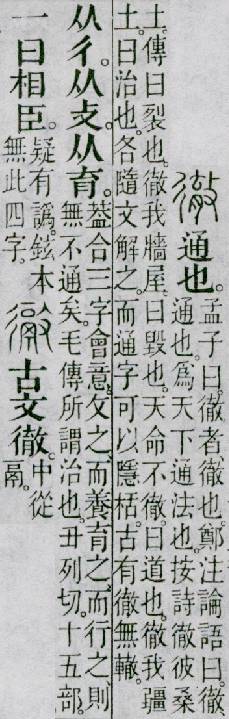 徹 通也。
孟子曰。徹者徹也。鄭注論語曰。徹
通也。爲天下通法也。按詩徹彼桑
土。傳曰裂也。徹我牆屋。曰毀也。天命不徹。曰道也。徹我疆
土。曰治也。各隨文解之。而通字可以隱栝。古有徹無轍。
从彳。从攴。从育。
蓋合三字會意。攵之而養育之而行之則
無不通矣。毛傳所謂治也。丑列切。十五部。
一曰相臣。
疑有譌。鉉本
無此四字。
徹 古文徹。
中從
鬲。